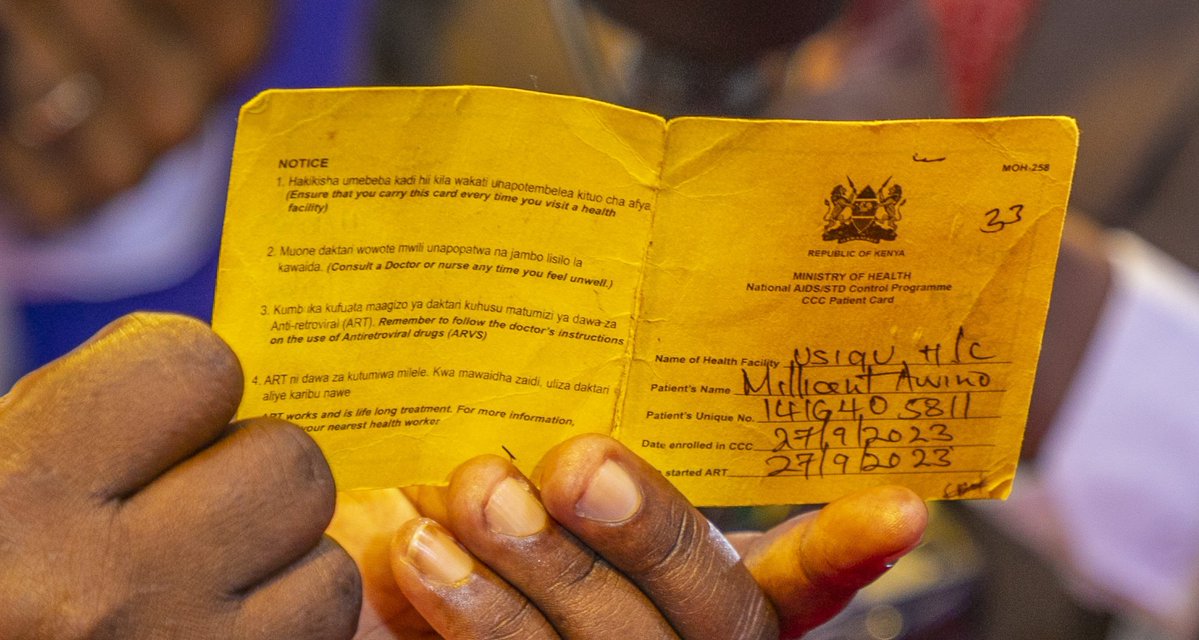 NOTICE
1. Hakikisha umebeba kadi hii kila wakati unapotembelea kituo cha afya
(Ensure that you carry this card every time you visit a health
facility)
2. Muone daktari wowote mwili unapopatwa na jambo lisilo la
kawaida. (Consult a Doctor or nurse any time you feel unwell.)
3. Kumb ika kufuata maagizo ya daktari kuhusu matumizi ya dawa za
Anti-retroviral (ART). Remember to follow the doctor's instructions
on the use of Antiretroviral drugs (ARVS)
4. ART ni dawa za kutumiwa milele. Kwa mawaidha zaidi, uliza daktari
aliye karibu nawe
works and is life long treatment. For more information,
your nearest health worker
MOH-258
33
REPUBLIC OF KENYA
MINISTRY OF HEALTH
National AIDS/STD Control Programme
CCC Patient Card
Name of Health Facility USIGU H/C
Patient's Name Millicent Awino
Patient's Unique No. 14164 05811
Date enrolled in CCC 27/9/2023
started ART 27/9/2023